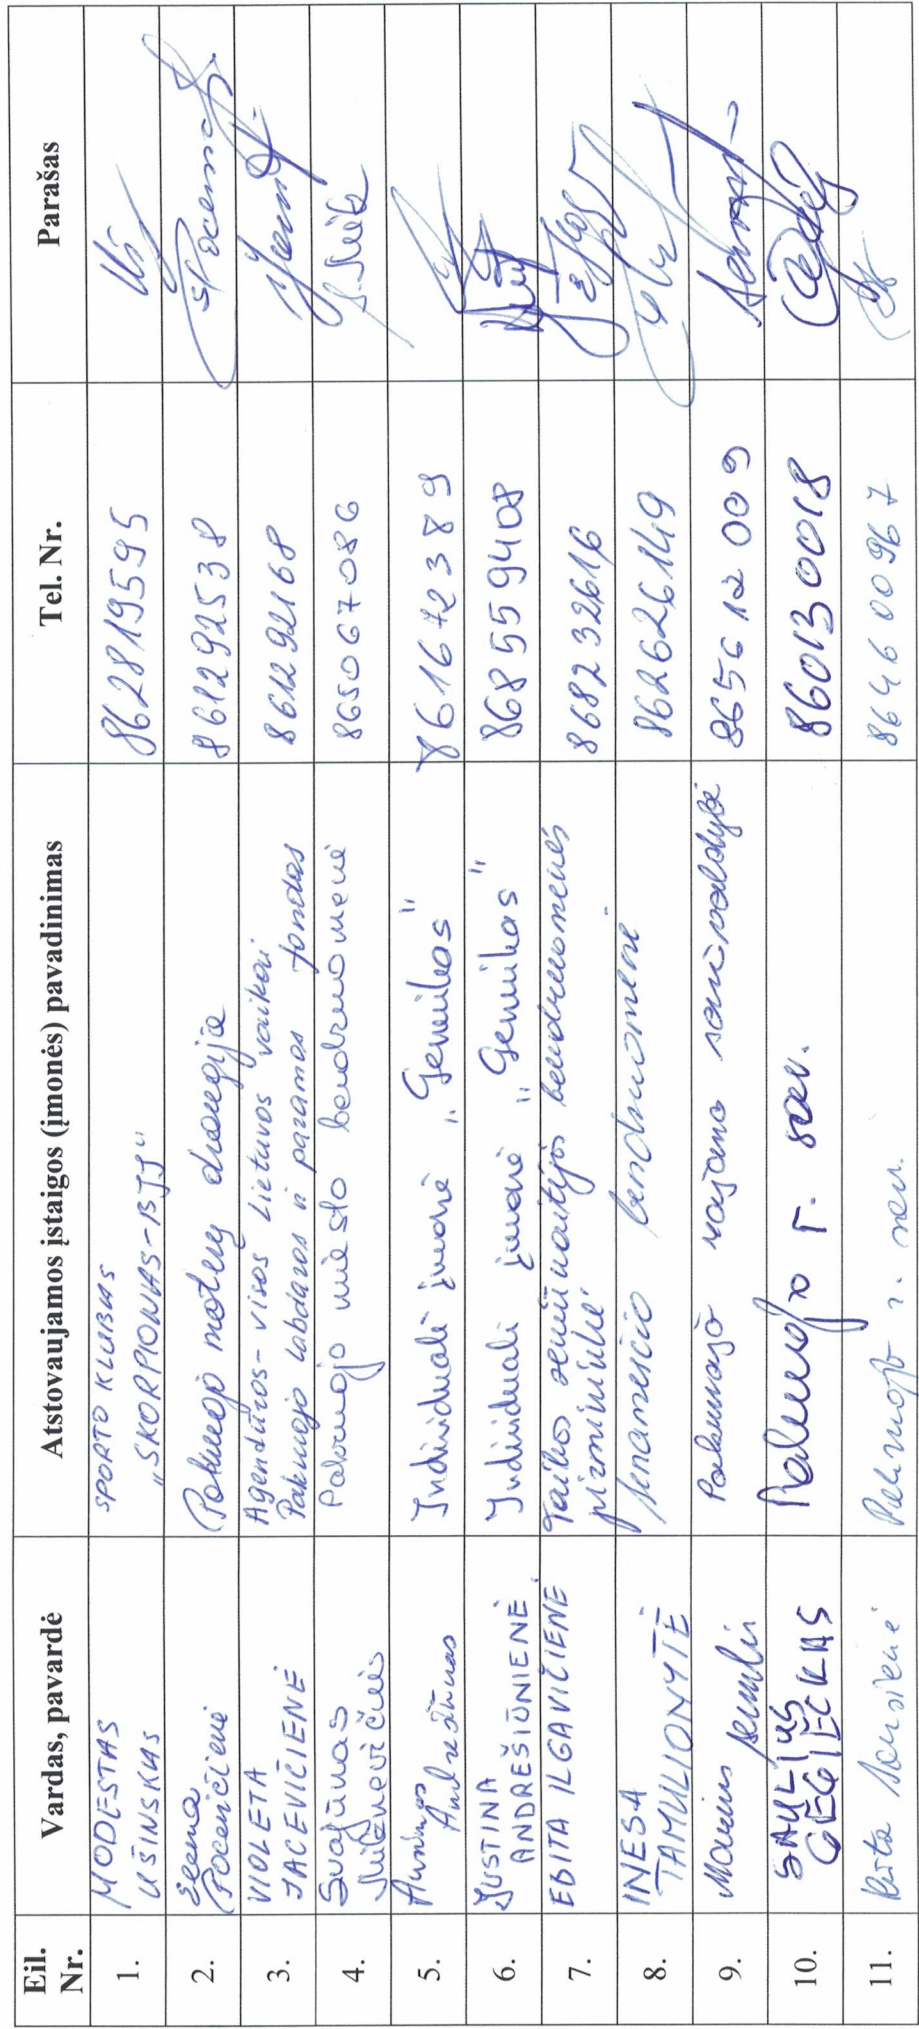 Eil. Nr. Vardas, pavardė Atstovaujamos įstaigos (įmonės) pavadinimas Tel. Nr. Parašas
1. MODESTAS UŠINSKAS SPORTO KLUBAS „SKORPIONAS-BJJ“ 862819595
2. Pocenčienė Pakruojo moterų draugija 861292538
3. VIOLETA JACEVIČIENĖ Agentūros-visos Lietuvos vaikai Pakruojo labdaros ir paramos fondas 861292168
4. Svajūnas Pakruojo miesto bendruomenė 865067086
5. Andrešiūnas Individuali įmonė „Geniukas" 861672389
6. JUSTINA ANDREŠIŪNIENĖ Individuali įmonė „Geniukas" 868559408
7. EDITA ILGAVIČIENĖ bendruomenės pirmininkė 868232616
8. INESA TAMULIONYTĖ bendruomenė 862626149
9. Marius Pakruojo rajono savivaldybė 865612009
10. SAULIUS GEGIECKAS Pakruojo r. sav. 860130018
11. Rita Pakruojo r. sav. 864600967